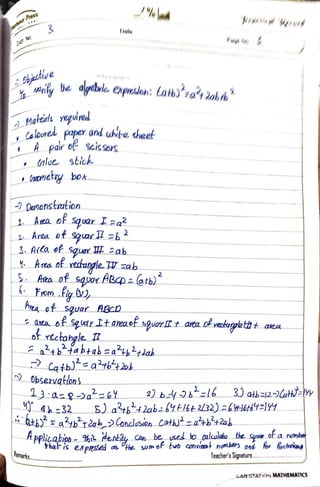 3
Date
Page No: 6
→ Objective
To verify the algebraic expression: (a+b)²=a²+2ab+b²
→ Materials required
• Coloured paper and white sheet
• A pair of scissors
• Glue stick
• Geometry box
→ Demonstration
1. Area of squar I =a²
2. Area of squar II =b²
3. Area of squar III =ab
4. Area of rectangle IV =ab
5. Area of squar ABCD = (a+b)²
6. From fig
Area of squar ABCD
= area of squar I + area of squar II + area of rectangle III + area
of rectangle II
= a²+b²+ab+ab = a²+b²+2ab
→ (a+b)² = a²+b²+2ab
→ Observations
1) a=8→a²=64 2) b=4→b²=16 3) a+b=12→(a+b)²=144
4) ab=32 5) a²+b²+2ab=64+16+2(32)=64+16+64=144
∴ (a+b)² = a²+b²+2ab → Conclusion (a+b)²=a²+b²+2ab
Application - This identity can be used to calculate the square of a number
that is expressed as the sum of two convinient numbers and for factorising
Remarks
Teacher's Signature
LAB STATION MATHEMATICS